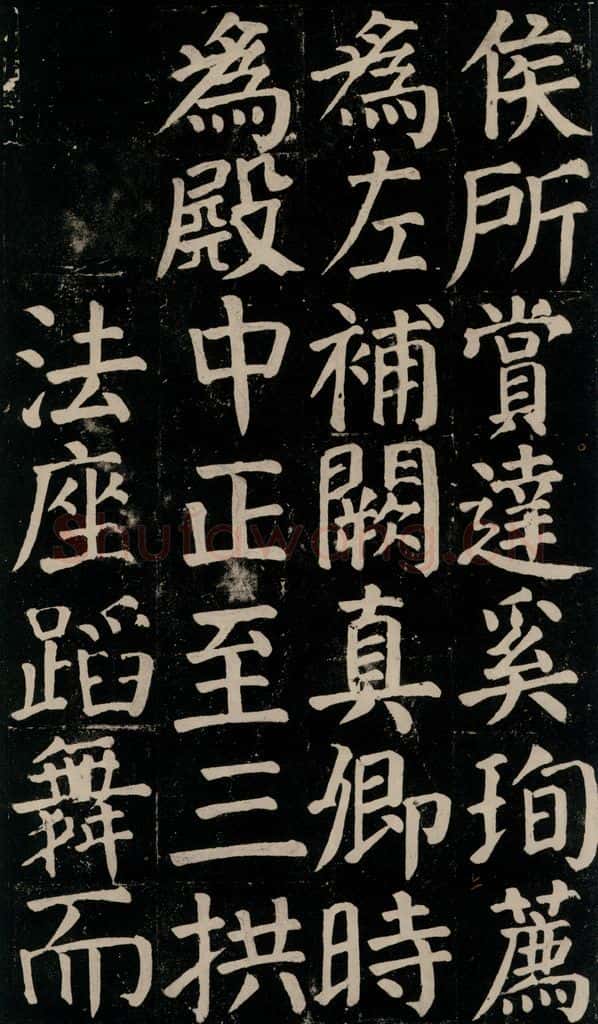 侯所賞達奚珣薦
為左補闕真卿時
為殿中正至三拱
法座蹈舞而
Shufawang.cn